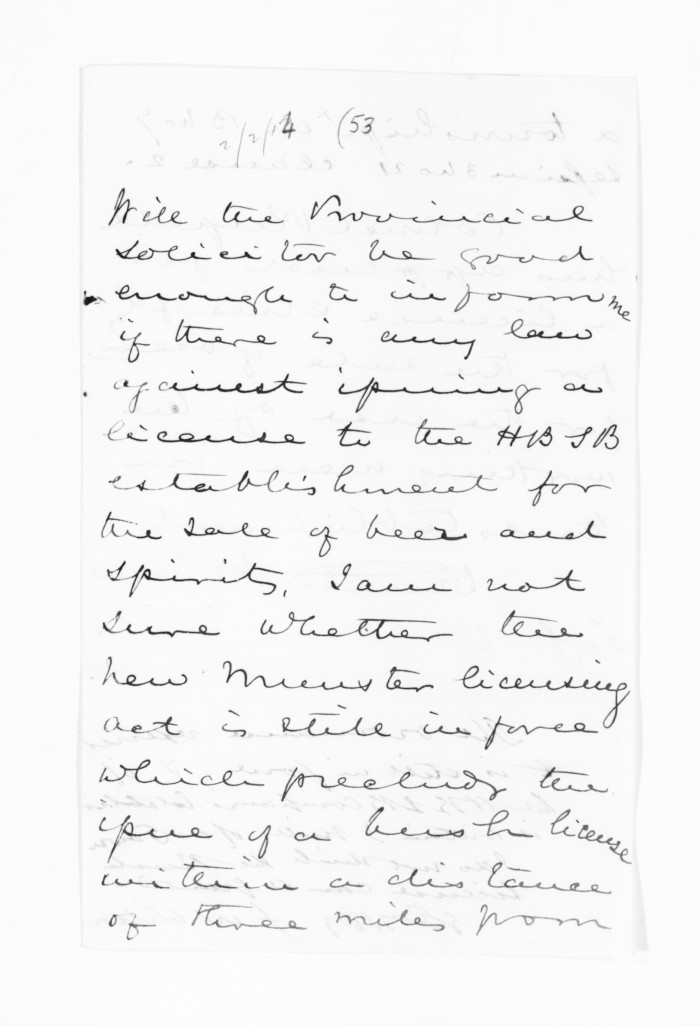 (53
Will the Provincial
Solicitor be good
enough to inform me
if there is any law
against issuing a
license to the HBSB
establishment for
the sale of beer and
spirits, I am not
sure whether the
New Munster licensing
act is still in force
which precluds the
issue of a bush license
within a distance
of three miles from